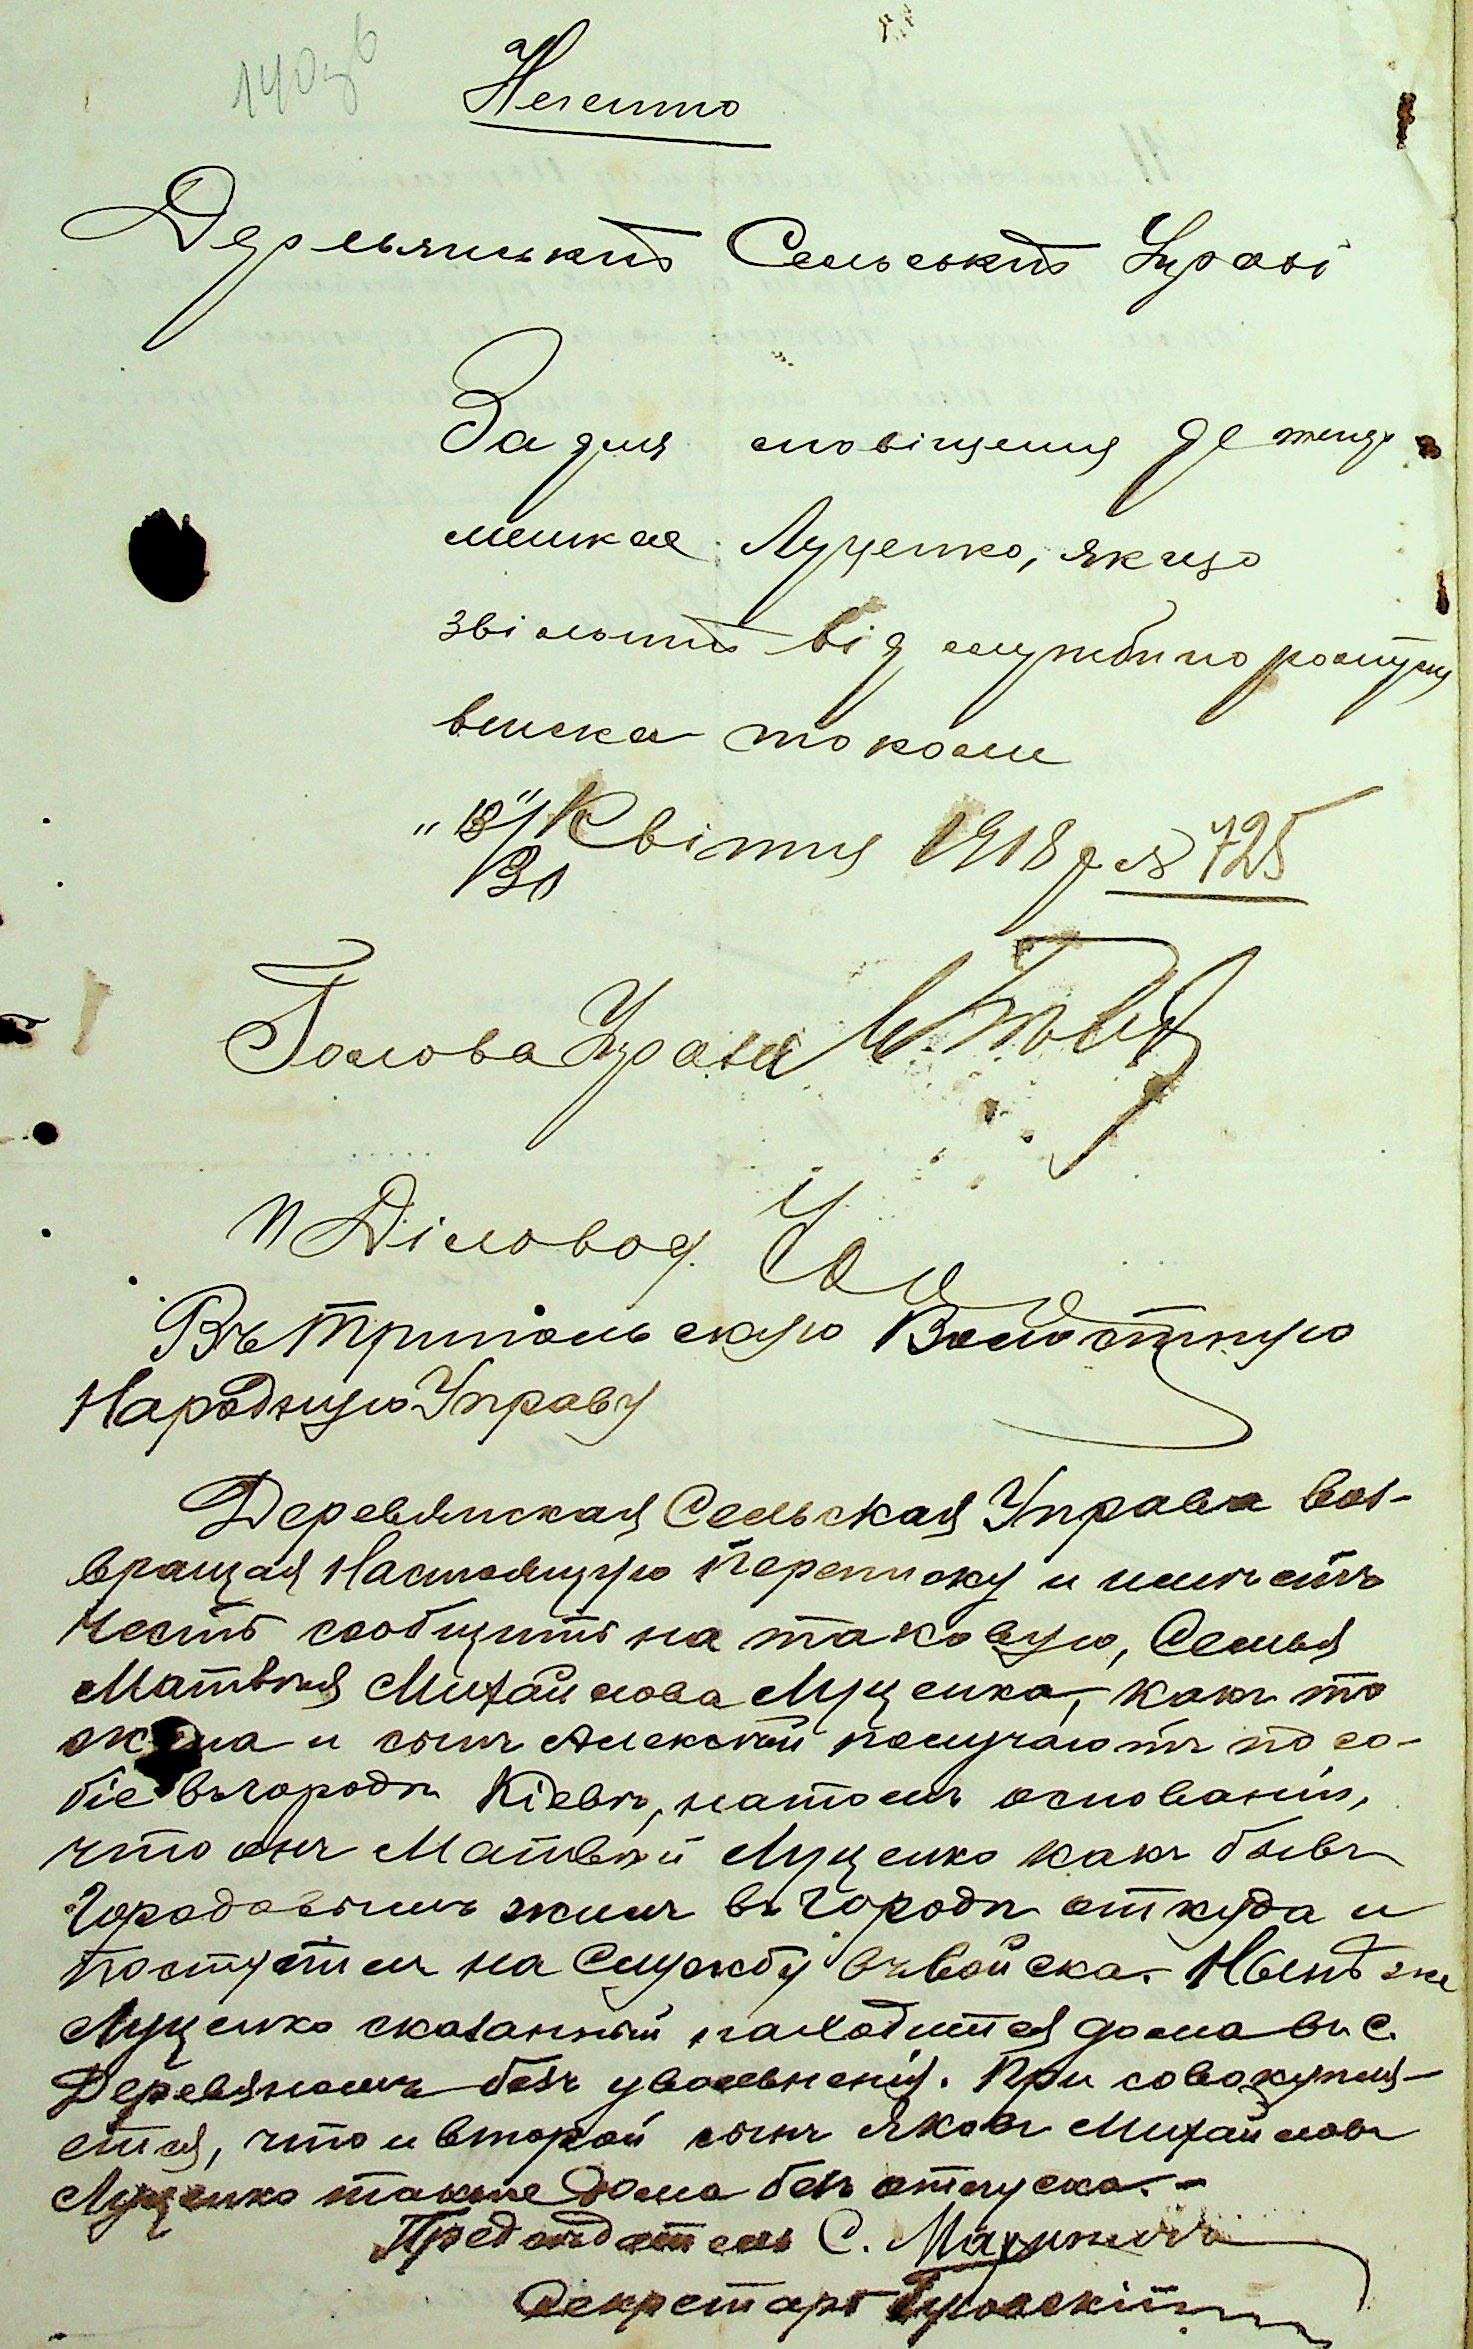 Негайно
Деревьянській Сельській Управі
Задля сповіщення де тепер
мешкае Луценко, якщо
звільнит від служби по роспуску
війска то коли
"18"/30 Квітня 1918 р № 725
Голова Управи
п Діловод.
Въ Трипольскую Волостную
Народную Управу
Деревянская Сельская Управа воз-
вращая Настоящую переписку и имѣетъ
честь сообщить на таковую, Семья
Матвѣя Михайлова Луценка, какъ то
жена и сынъ Алексѣй получаютъ посо-
біе въ городѣ Кіевѣ, на томъ основаніи,
что онъ Матвѣй Луценко какъ бывъ
Городовымъ жилъ въ городѣ откуда и
поступилъ на Службу въ войска. Нынѣ же
Луценко сказанный находится дома въ с.
Деревяномъ безъ увольненія. При совокупля-
ется, что и второй сынъ Яковъ Михайловъ
Луценко также дома безъ отпуска.-
Предсѣдатель С.
Секретарь